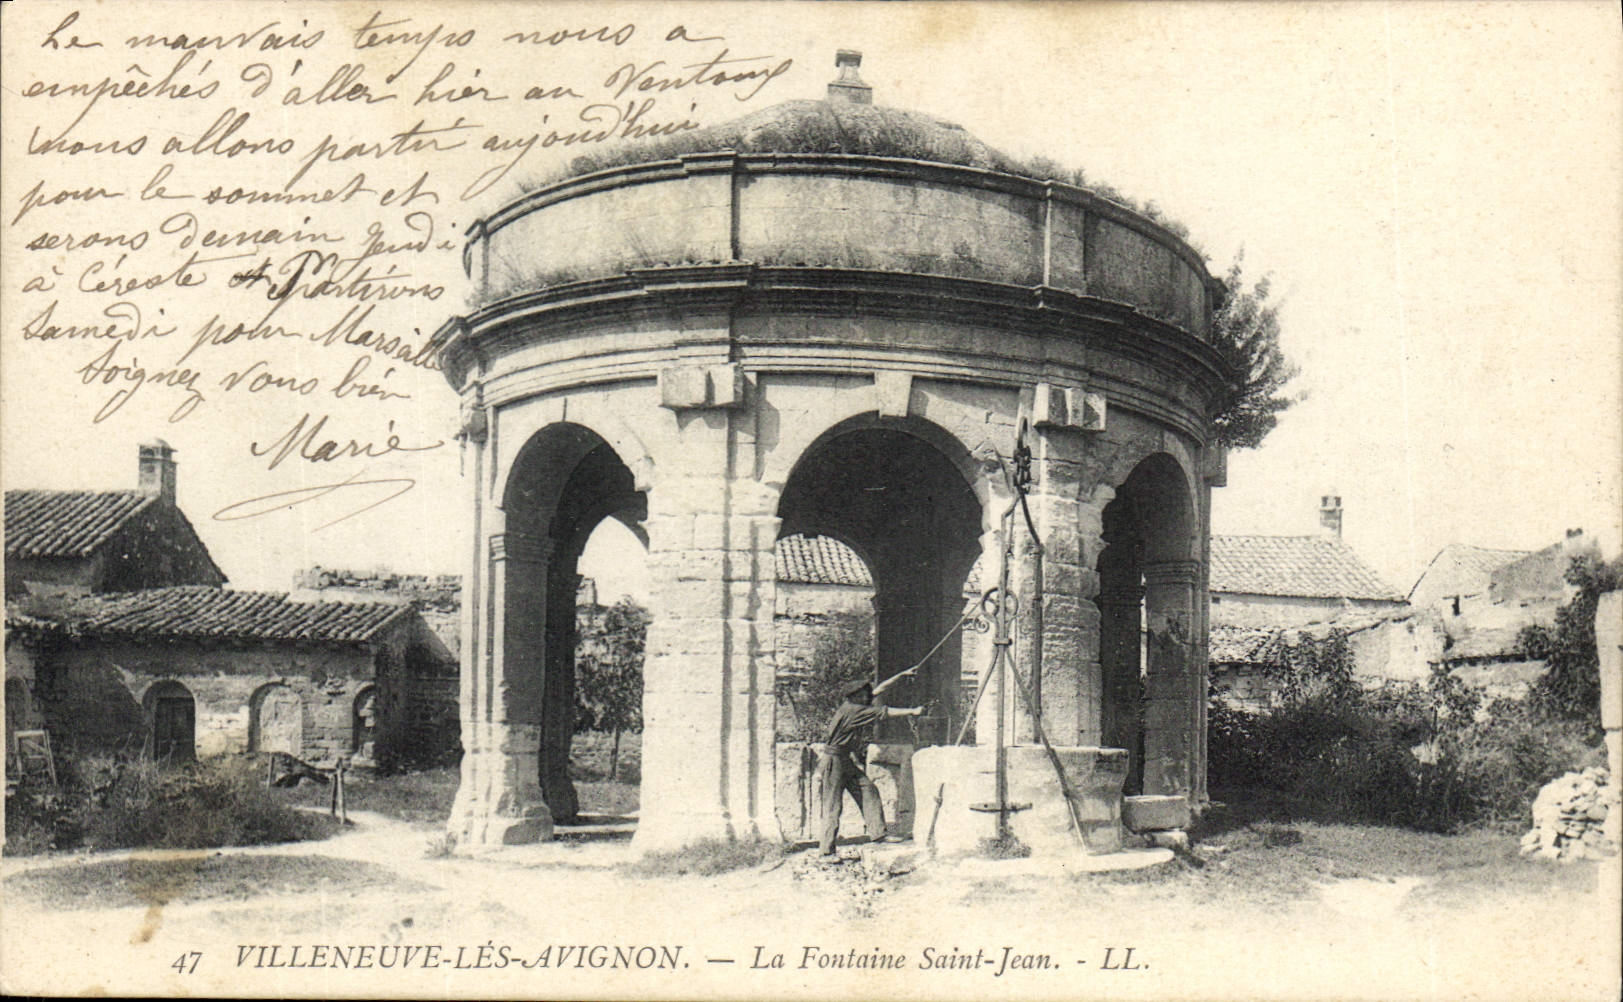 Le mauvais temps nous a
empêchés d'aller hier au Ventoux
nous allons partir aujourd'hui
pour le sommet et
serons demain Jeudi
à Céreste et Partirons
Samedi pour Marseille
Soignez vous bien
Marie
47 VILLENEUVE-LÉS-AVIGNON. — La Fontaine Saint-Jean. - LL.